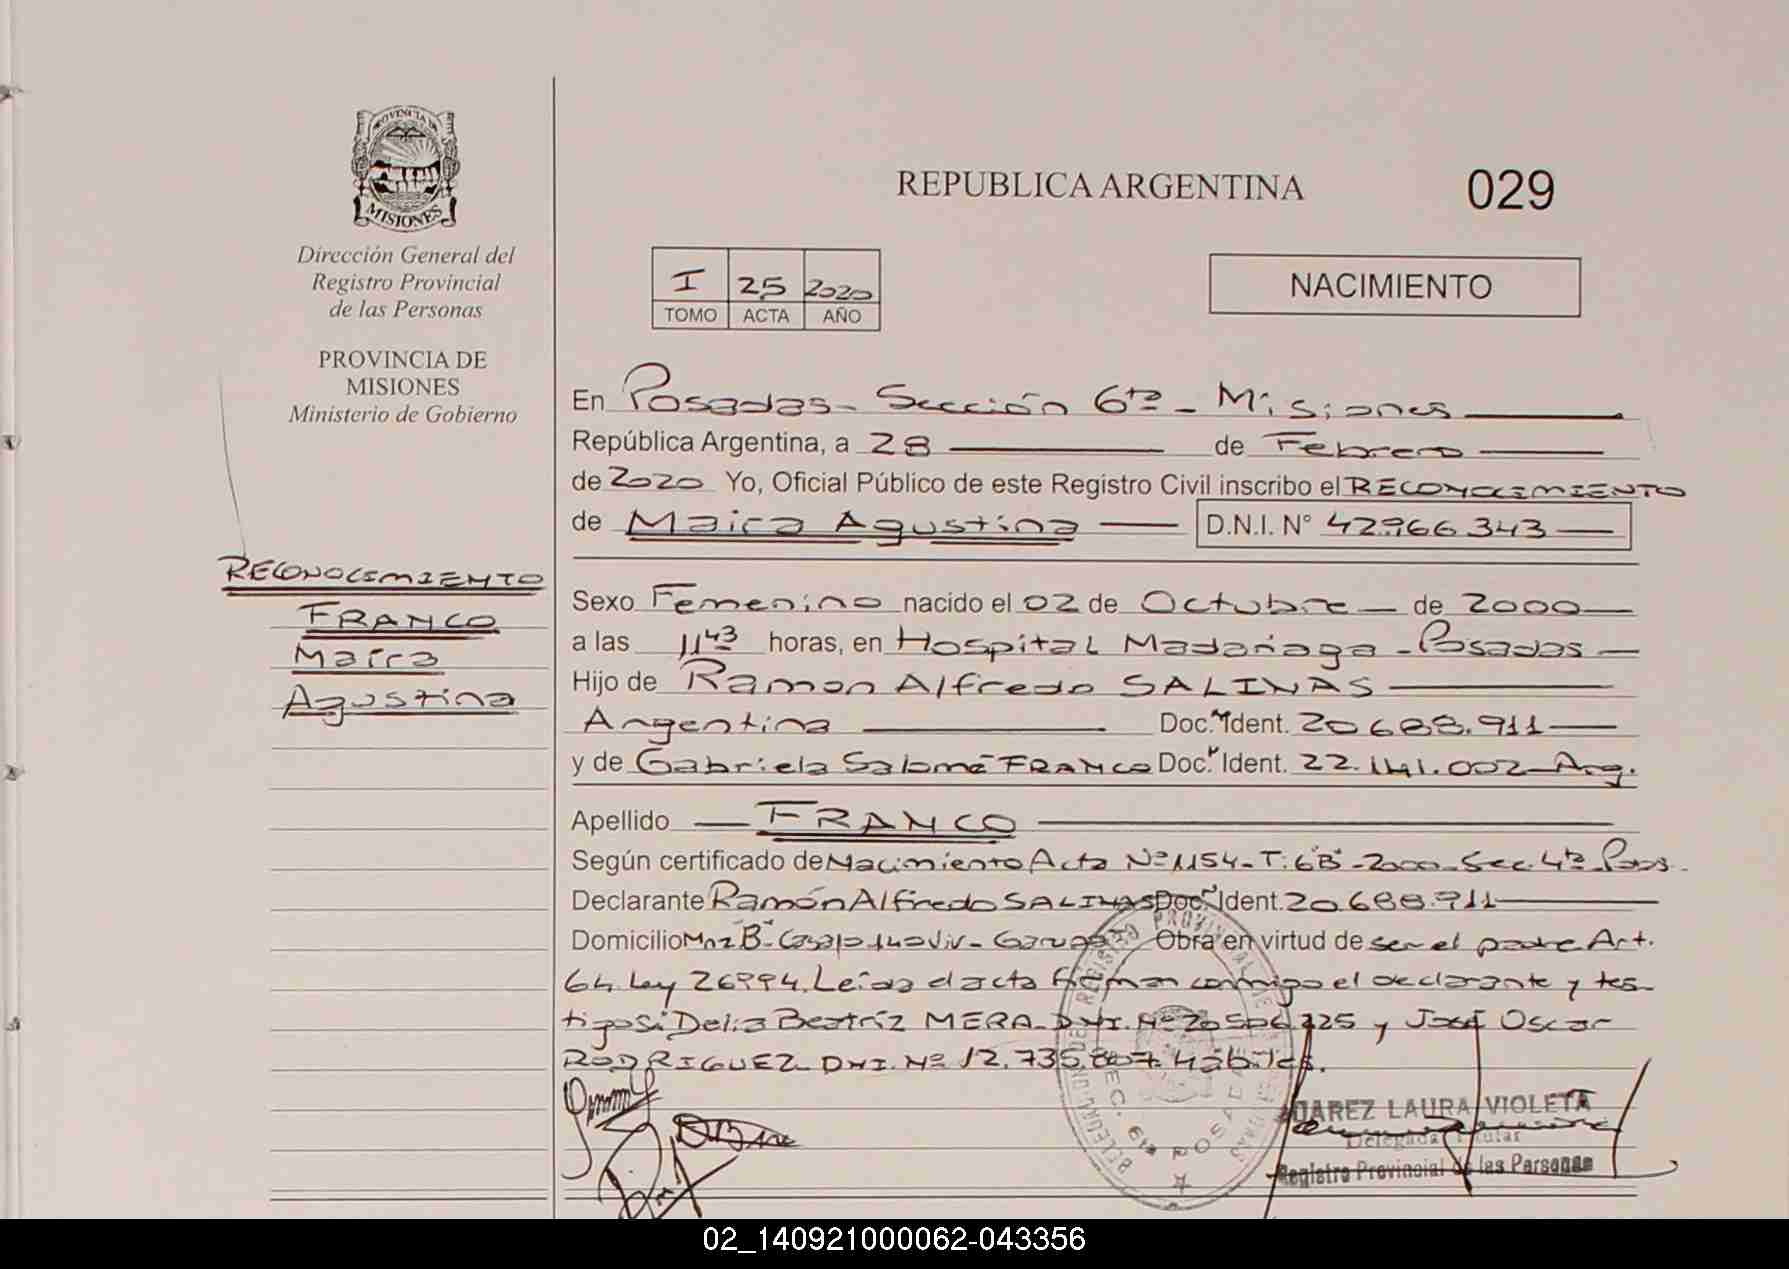 PROVINCIA DE
MISIONES
Dirección General del
Registro Provincial
de las Personas
PROVINCIA DE
MISIONES
Ministerio de Gobierno
REPUBLICA ARGENTINA
029
I 25 2020
TOMO ACTA AÑO
NACIMIENTO
En Posadas - Sección 6ta - Misiones
República Argentina, a 28 de Febrero
de 2020 Yo, Oficial Público de este Registro Civil inscribo el RECONOCIMIENTO
de Maira Agustina D.N.I. N° 42.966.343
RECONOCIMIENTO
FRANCO
Maira
Agustina
Sexo Femenino nacido el 02 de Octubre de 2000
a las 11 43 horas, en Hospital Madariaga - Posadas
Hijo de Ramon Alfredo SALINAS
Argentina Doc. Ident. 20.688.911
y de Gabriela Salomé FRANCO Doc. Ident. 22.141.002 - Arg.
Apellido FRANCO
Según certificado de Nacimiento Acta Nº 1154 - T: 6"B" - 2000 - Sec. 4ta Pdas.
Declarante Ramón Alfredo SALINAS Doc. Ident. 20.688.911
Domicilio Mnz "B" - Casa 10 - 140 Viv - Garupá Obra en virtud de ser el padre Art.
64. Ley 26994. Leída el acta firman conmigo el declarante y tes-
tigos: Delia Beatríz MERA - DNI. Nº 20.506.225 y José Oscar
RODRIGUEZ - DNI. Nº 12.735.807. Hábiles.
JUAREZ LAURA VIOLETA
Delegada Titular
Registro Provincial de las Personas
SEC. 6ta POSADAS
02_140921000062-043356